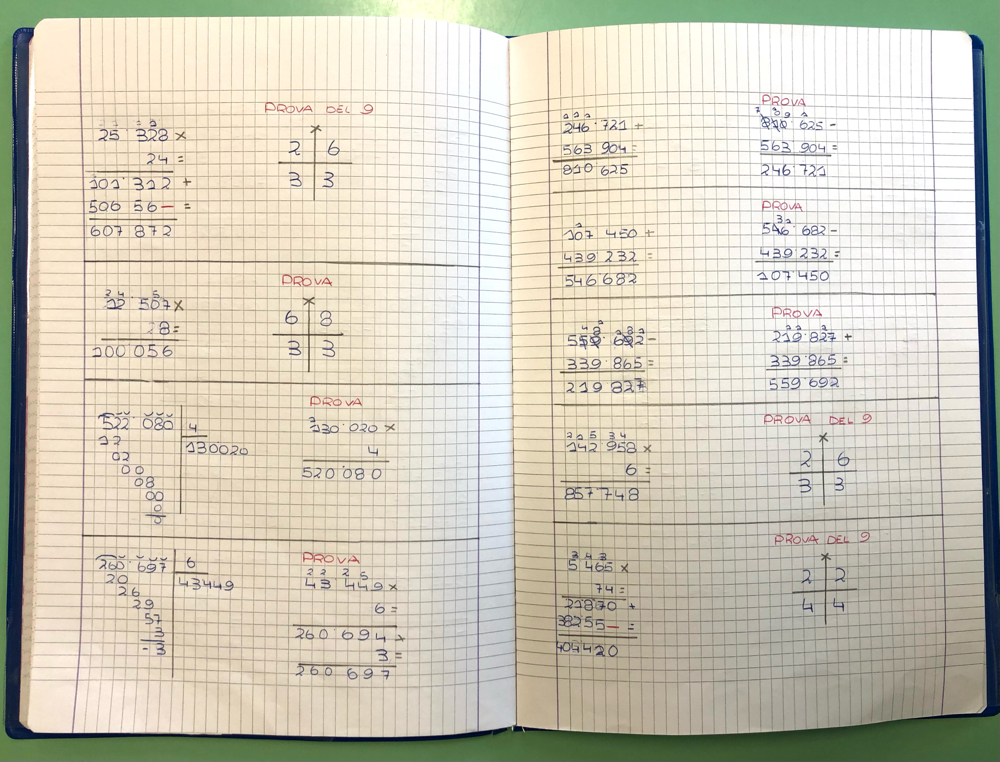 PROVA DEL 9
25·328 ×
24 =
101·312 +
506 56– =
607 872
×
2 6
3 3
PROVA
2 4 5
12·507 ×
8 =
100 056
×
6 8
3 3
522·080 4
12 130020
02
00
08
00
0
0
PROVA
130·020 ×
4
520·080
260·697 6
20 43449
26
29
57
3
- 3
PROVA
2 2 2 5
43 449 ×
6 =
260 694 +
3 =
260 697
246·721 +
563 904 =
810 625
PROVA
810·625 –
563 904 =
246·721
107 450 +
439 232 =
546·682
PROVA
546·682 –
439 232 =
107·450
559·692 –
339 865 =
219 827
PROVA
219·827 +
339 865 =
559·692
2 0 5 3 4
142 958 ×
6 =
857·748
PROVA DEL 9
×
2 6
3 3
3 4 3
5 465 ×
74 =
21870 +
38255– =
404420
PROVA DEL 9
×
2 2
4 4